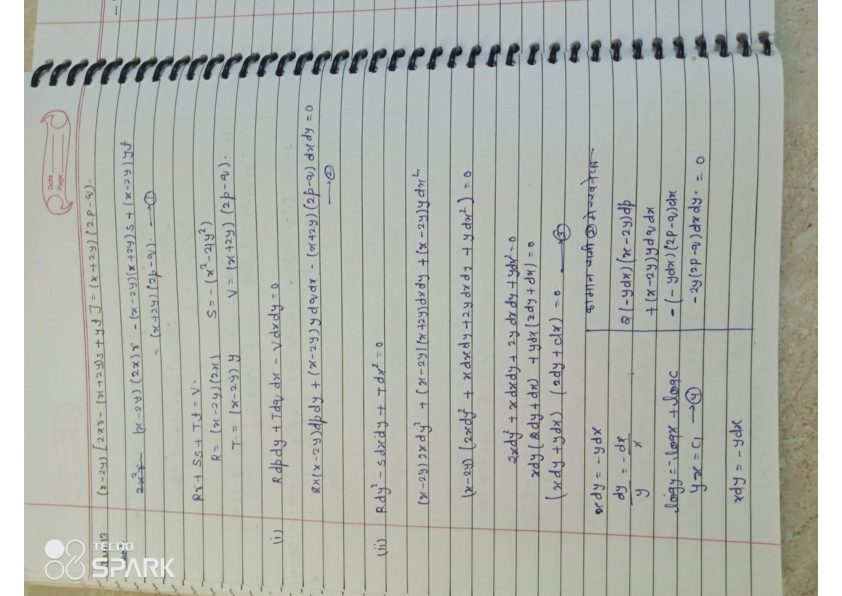 Date
Page
(x-2y) [2xr - (x+2y)s + yt] = (x+2y) (2p-q).
(x-2y) (2x) r - (x-2y)(x+2y) s + (x-2y) yt
= (x+2y) (2p-q). —①
Rr + Ss + Tt = V.
R = (x-2y) (2x) S = -(x²-2|y²)
T = (x-2y) y V = (x+2y) (2p-q).
(i) Rdpdy + Tdq dx - Vdxdy = 0
2x(x-2y)dpdy + (x-2y) y dqdx - (x+2y) (2p-q) dxdy = 0
—②
(ii) Rdy² - sdxdy + Tdx² = 0
(x-2y) 2xdy² + (x-2y)(x+2y)dxdy + (x-2y)ydx²
(x-2y) (2xdy² + xdxdy + 2ydxdy + ydx²) = 0
2xdy² + xdxdy + 2ydxdy + ydx² = 0
xdy(2dy+dx) + ydx(2dy+dx) = 0
(xdy+ydx) (2dy+dx) = 0 —③
xdy = -ydx
dy/y = -dx/x
logy = -logx + logc
yx = c₁ —④
xdy = -ydx
का मान समी ② मे रखने पर
2(-ydx)(x-2y)dp
+ (x-2y)ydqdx
- (-ydx) (2p-q)dx
- 2y(2p-q)dxdy. = 0
TECNO
SPARK